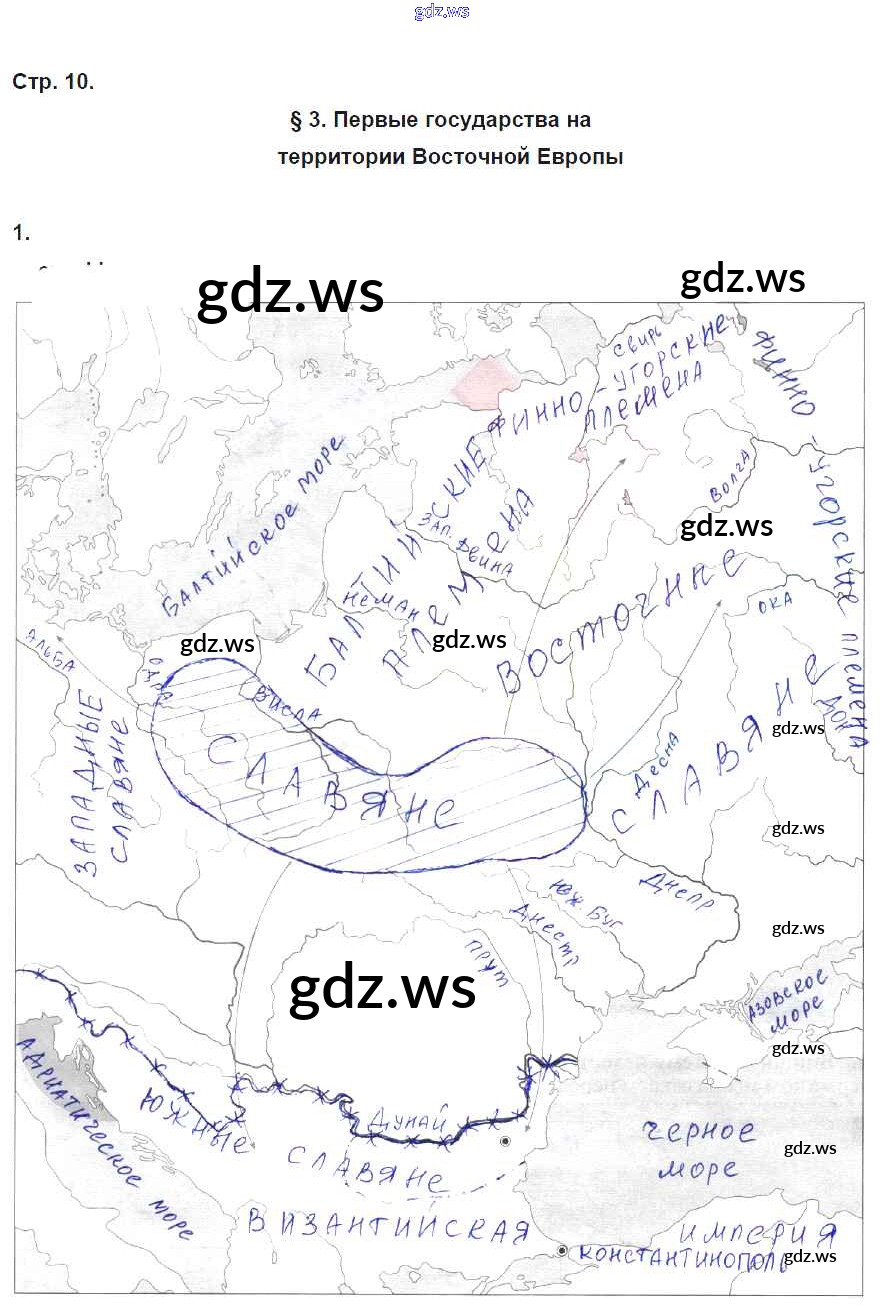 gdz.ws
Стр. 10.
§ 3. Первые государства на
территории Восточной Европы
1.
gdz.ws
gdz.ws
СВИРЬ
ФИННО - УГОРСКИЕ
ПЛЕМЕНА
ФИННО - УГОРСКИЕ ПЛЕМЕНА
БАЛТИЙСКОЕ МОРЕ
БАЛТИЙСКИЕ
ПЛЕМЕНА
ЗАП. ДВИНА
ВОЛГА
gdz.ws
НЕМАН
ОКА
ВОСТОЧНЫЕ
СЛАВЯНЕ
gdz.ws
gdz.ws
АЛЬБА
ОДРА
ВИСЛА
ДОН
gdz.ws
ЗАПАДНЫЕ
СЛАВЯНЕ
СЛАВЯНЕ
ДЕСНА
gdz.ws
ДНЕПР
ЮЖ. БУГ
ДНЕСТР
ПРУТ
gdz.ws
gdz.ws
АЗОВСКОЕ
МОРЕ
gdz.ws
АДРИАТИЧЕСКОЕ МОРЕ
ЮЖНЫЕ
СЛАВЯНЕ
ДУНАЙ
ЧЕРНОЕ
МОРЕ
gdz.ws
ВИЗАНТИЙСКАЯ ИМПЕРИЯ
КОНСТАНТИНОПОЛЬ
gdz.ws